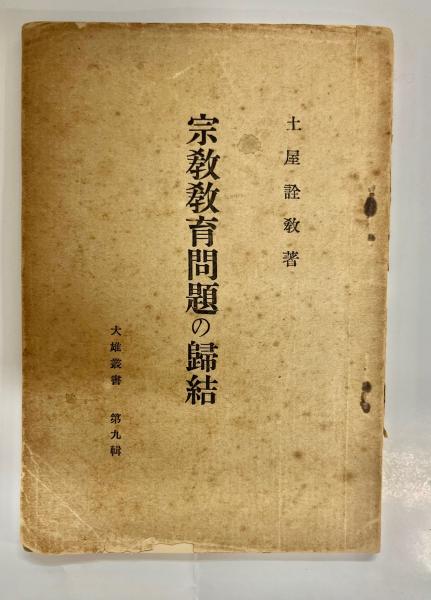 土屋詮教著
宗教教育問題の歸結
大雄叢書 第九輯